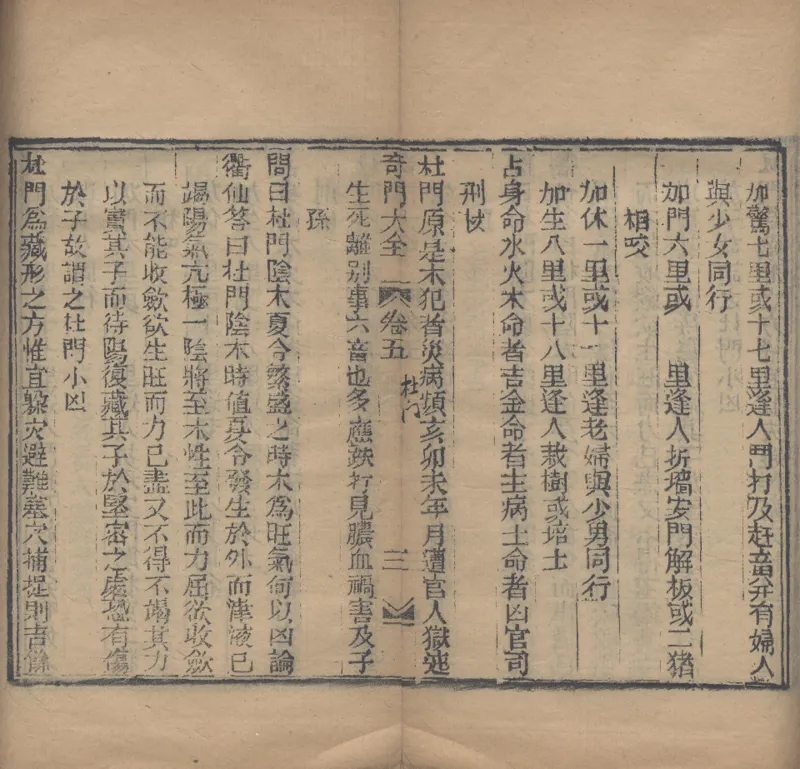 加驚七里或十七里逢人鬥打及赶畜并有婦人
與少女同行
加門六里或　里逢人折墻安門解板或二猪
相咬
加休一里或十一里逢老婦與少男同行
加生八里或十八里逢人栽樹或培土
占身命水火木命者吉金命者主病土命者凶官司
刑杖
杜門原是木犯者災病頻亥卯未年月遭官人獄迍
奇門大全　卷五　杜门　三
生死離別事六音也多應跌打見膿血禍害及子
孫
問曰杜門陰木夏令繁盛之時木爲旺氣何以凶論
衢仙答曰杜門陰木時值夏令發生於外而津液已
竭陽氣亢極一陰將至木性至此而力屈欲收歛
而不能收歛欲生旺而力已盡又不得不竭其力
以實其子而待陽復藏其子於堅密之處恐有傷
於子故謂之杜門小凶
杜門爲藏形之方惟宜躱灾避難塞穴捕捉則吉餘